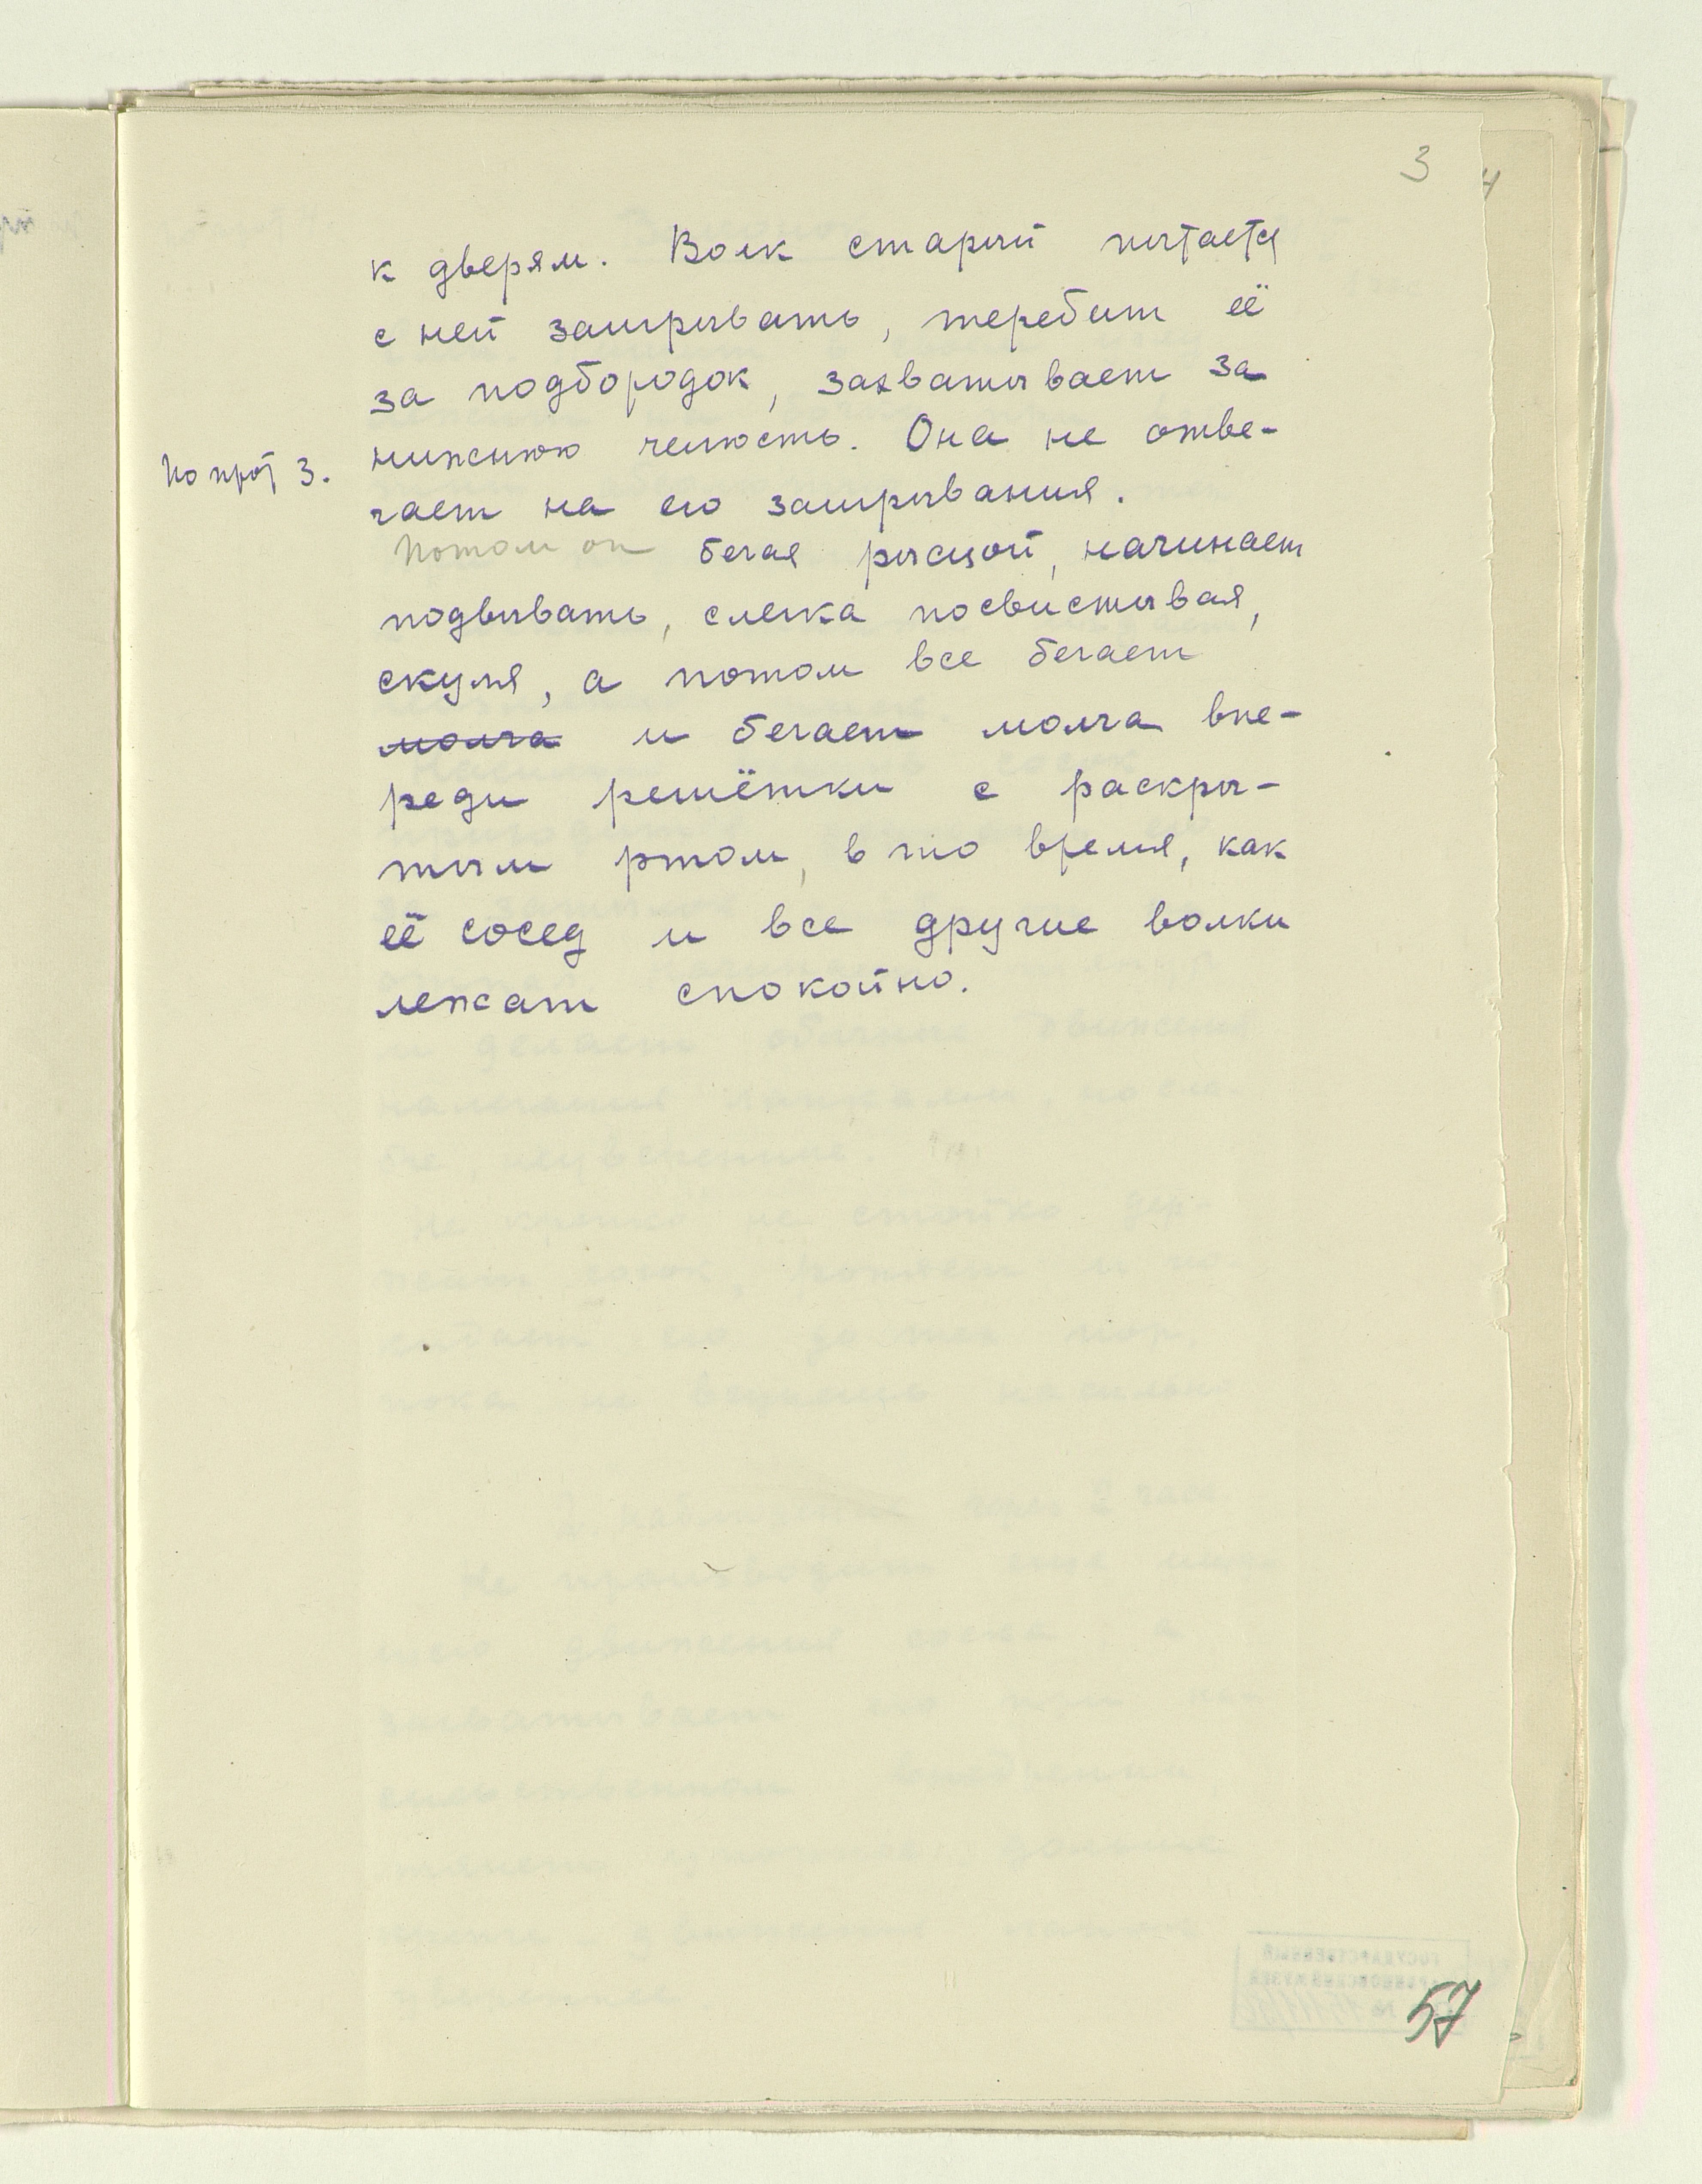 3
4
к дверям. Волк старый пытаетя
с ней заигрывать, теребит её
за подбородок, захватывает за
По прот 3. нижнюю челюсть. Она не отве-
чает на его заигрывания.
Потом он бегая рысцой, начинает
подвывать, слегка посвистывая,
скуля, а потом все бегает
молча и бегает молча впе-
реди решётки с раскры-
тым ртом, в то время, как
её сосед и все другие волки
лежат спокойно.
57